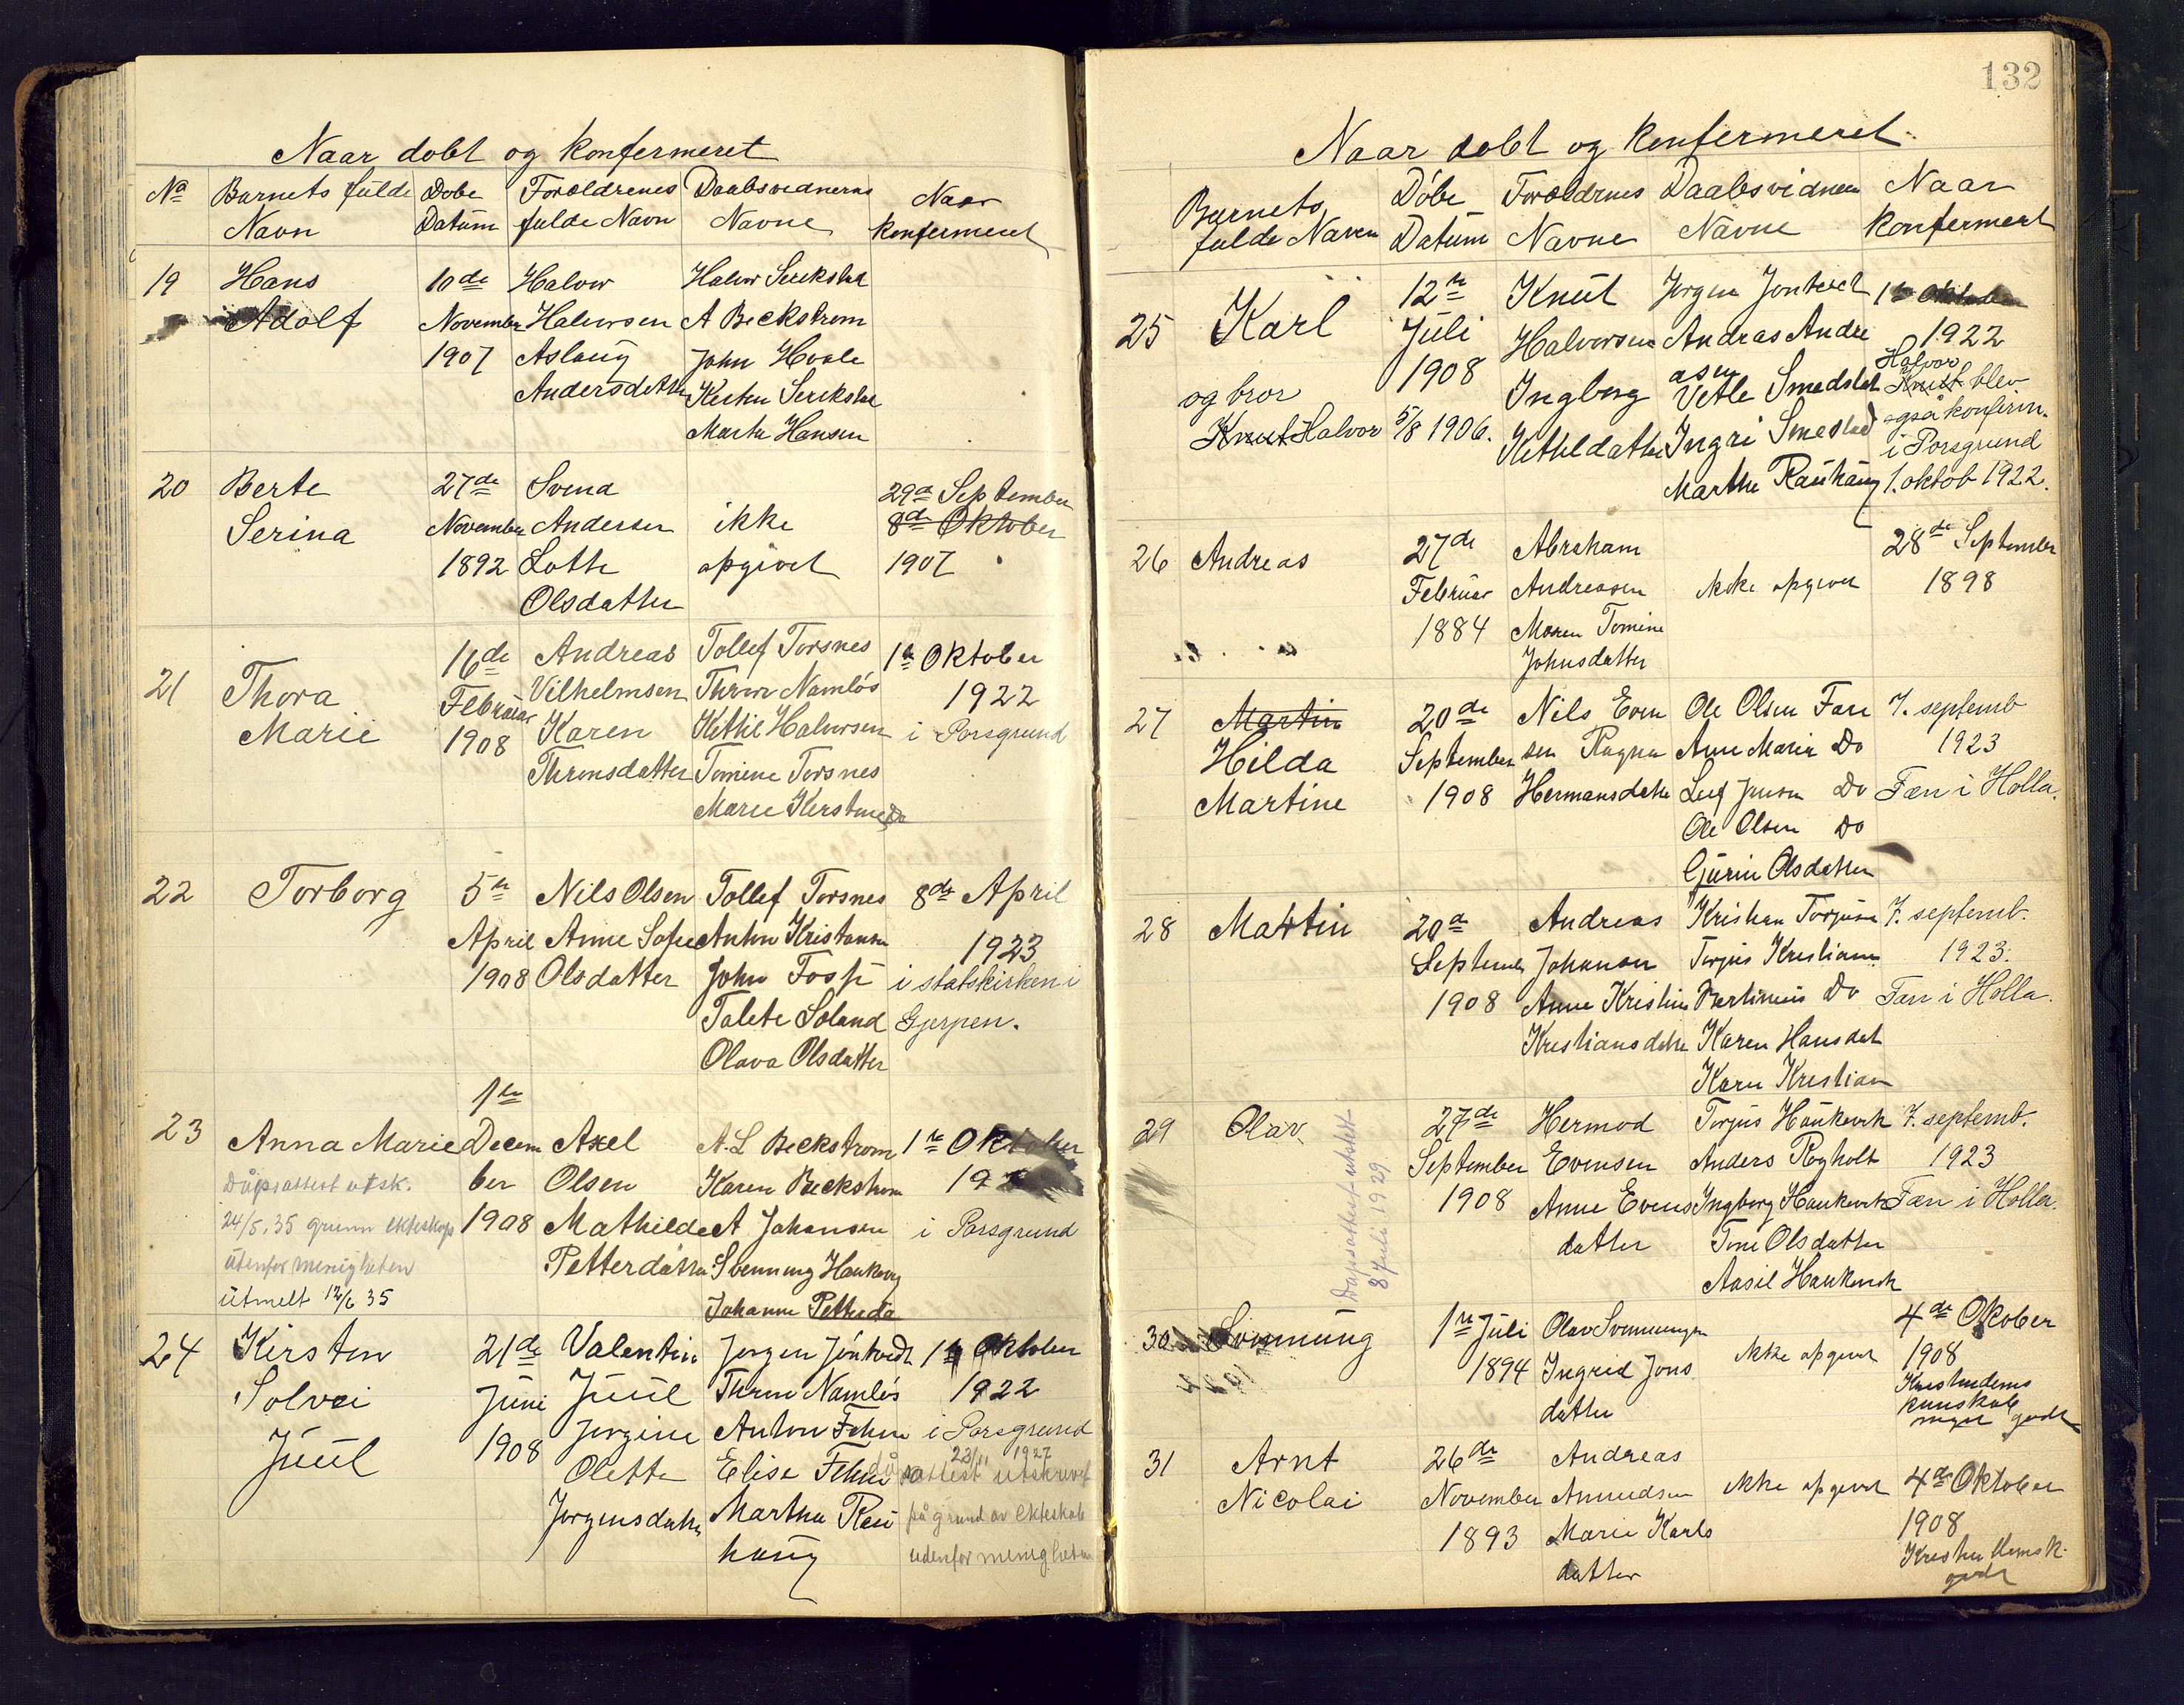 Naar döbt og konfermeret
No Barnets fulde Navn
Döbe Datum
Foroeldrenes fulde Navn
Daabsvidnerns Navne
Naar konfermeret
19
Hans
Adolf
10de
November
1907
Halvor
Halvorsen
Aslaug
Andersdatter
A Beckstrom
John Hvale
Marthe Hansen
20
Berte
Serina
27de
November
1892
Svend
Andersen
Lothe
Olsdatter
ikke
opgivet
29de September
8de Oktober
1907
21
Thora
Marie
16de
Februar
1908
Andreas
Vilhelmsen
Karen
Thronsdatter
Tollef Torsnes
Thron Namlös
Kittil Halvorsen
Tomine Torsnes
1te Oktober
1922
i Porsgrund
22
Torborg
5te
April
1908
Nils Olsen
Anne Sofie
Olsdatter
Tollef Torsnes
Anton Kristansen
John Foss
Talete Soland
Olava Olsdatter
8de April
1923
i statskirken i
Gjerpen.
23
Anna Marie
Dåpsattest utsk.
24/5. 35 grunn ekteskap
utenfor menigheten
utmelt 12/6 35
1te
Decem
ber
1908
Axel
Olsen
Mathilde
Petterdatter
A.L Beckstrom
Karen Beckstrom
A Johansen
Svennung Haukvig
Johanne Petterda
1te Oktober
19
i Porsgrund
24
Kirsten
Solvei
Juul
21de
Juni
1908
Valentin
Juul
Jorgine
Olette
Jorgensdatter
Jorgen Jöntvedt
Thron Namlös
Anton Fehn
Elise Fehn
Marthe Rau
haug
1te Oktober
1922
i Porsgrund
23/11 1927
dåpsattest utskrevet
på grund av ekteskab
udenfor menigheten
132
Naar döbt og konfermeret.
Barnets fulde Naven
Döbe Datum
Foroeldrnes Navne
Daabsvidnern Navne
Naar konfermert
25
Karl
og bror
Knut Halvor
12te
Juli
1908
5/8 1906.
Knut
Halvorsen
Ingborg
Kitheldatter
Jorgen Jontvedt
Andras Andre
asen
Vetle Smedstad
Ingri Smestad
Marthe Rauhaug
1te Oktober
1922
Halvor
Knut blev
også konfirm.
i Porsgrund
1. oktob 1922.
26
Andreas
27de
Februar
1884
Abraham
Andreasen
Maren Tomine
Johnsdatter
ikke opgivet
28de September
1898
27
Martin
Hilda
Martine
20de
September
1908
Nils Even
sen Ragna
Hermansdatter
Ole Olsen Fæn
Anne Marie Do
Leif Jensen Do
Ole Olsen Do
Gurine Olsdatter
7. septemb
1923
Fæn i Holla.
28
Martin
20de
Septemb
1908
Andreas
Johansen
Anne Kristine
Kristiansdatter
Kristian Torjusen
Torjus Kristiansen
Martinius Do
Karen Hansdat
Karen Kristian
7. septemb.
1923.
Fæn i Holla.
29
Olav
Daapsattest utstedt
8 juli 1929.
27de
September
1908
Hermod
Evensen
Anne Evens
datter
Torjus Haukevik
Anders Rogholt
Ingborg Haukevik
Tone Olsdatter
Aasil Haukevik
7. septemb.
1923
Fæn i Holla.
30
Svennung
1te Juli
1894
Olav Svennungsen
Ingrid Jons
datter
ikke opgivet
4de Okober
1908
Kristendoms
kunskab
meget godt
31
Arnt
Nicolai
26de
November
1893
Andreas
Amundsen
Marie Karls
datter
ikke opgivet
4de Oktober
1908
godt